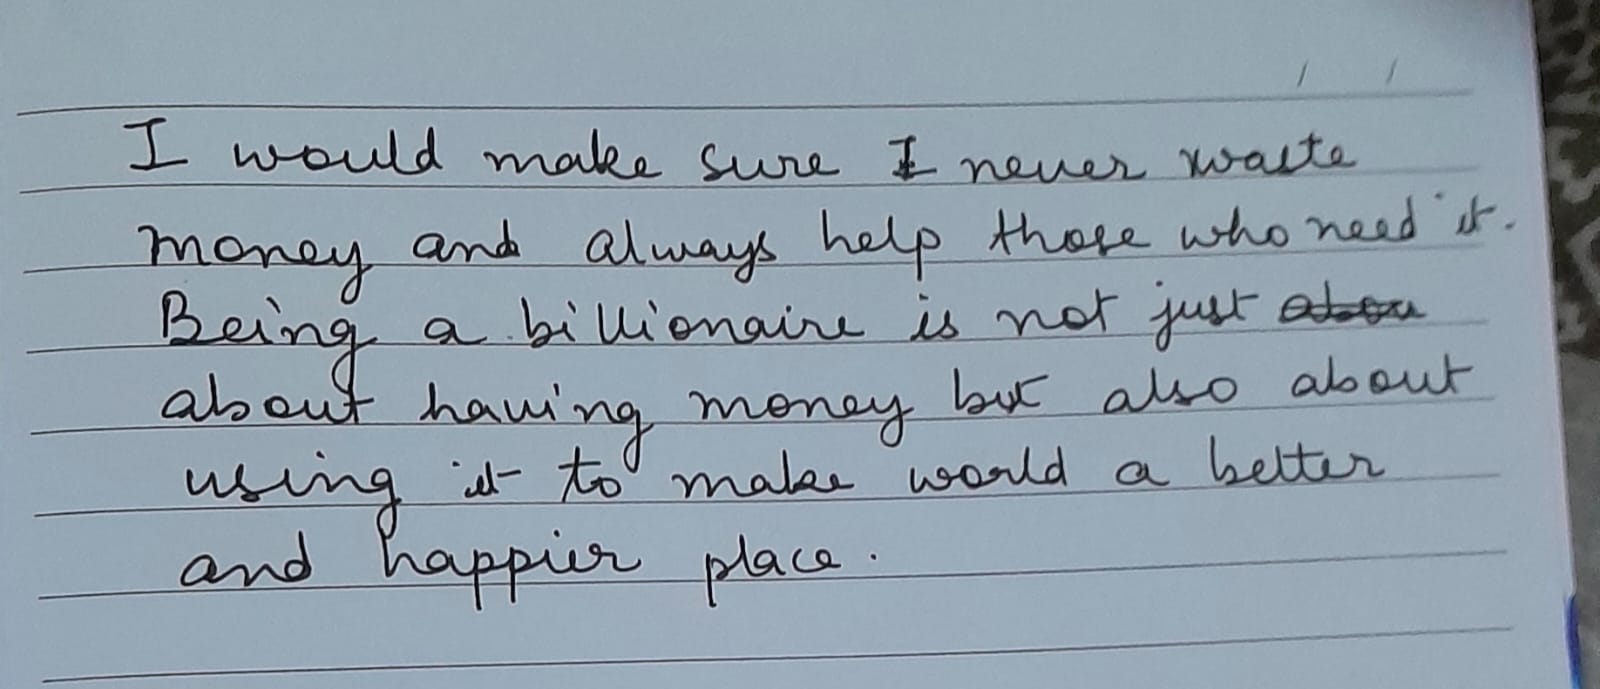 I would make sure I never waste
money and always help those who need it.
Being a billionaire is not just
about having money but also about
using it to make world a better
and happier place.